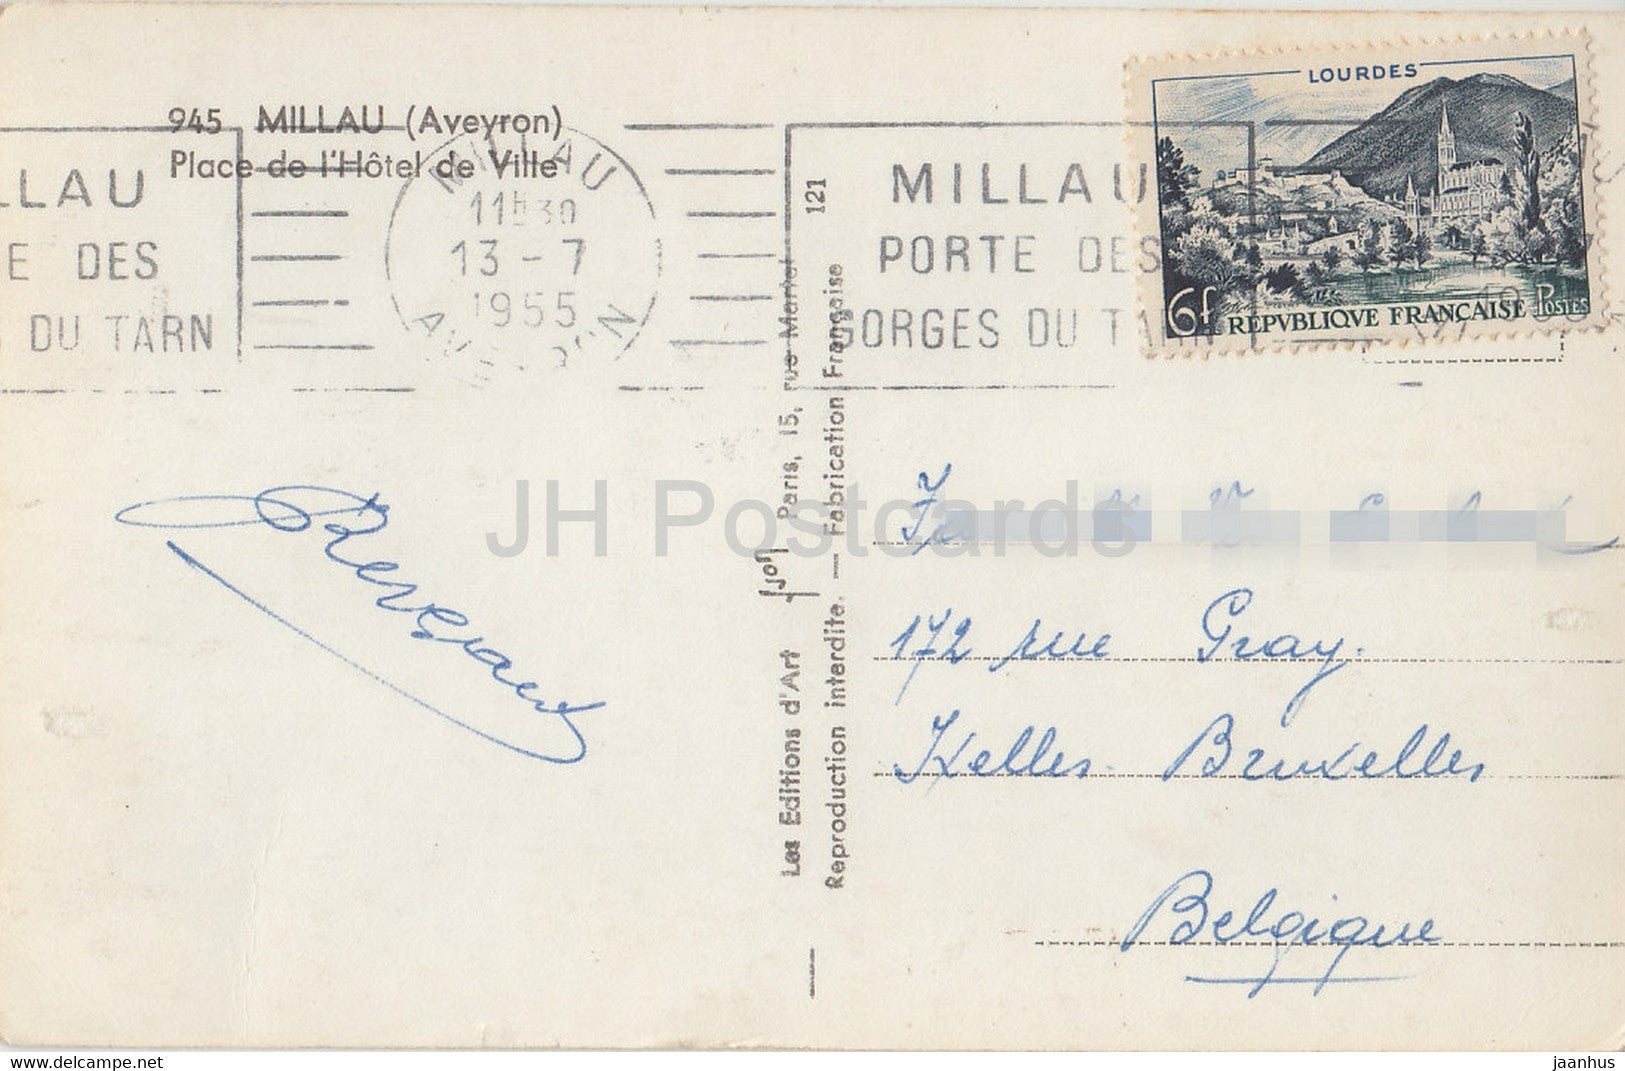 945 MILLAU (Aveyron)
Place de l'Hôtel de Ville
LLAU
E DES
DU TARN
MILLAU
11h30
13-7
1955
MILLAU
PORTE DES
GORGES DU TARN
LOURDES
6f REPVBLIQVE FRANÇAISE POSTES
Les Editions d'Art Yvon Paris, 15, rue Martel
Reproduction interdite. — Fabrication Française
121
172 rue Gray.
Ixelles. Bruxelles
Belgique
JH Postcards
delcampe.net
jaanhus